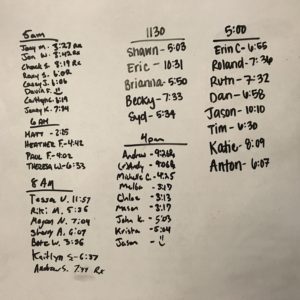 5am
Jony M. 8:27 Rx
Jon W. 8:42 Rx
Chuck S. 8:19 Rx
Roxy S. 6:02
Casey J. 6:06
David F. :)
Caitlyn C. 6:19
Jenny K. 7:34
6 AM
MATT - 2:25
HEATHER F. - 4:42
PAUL F. - 4:02
THERESA W - 6:33
8 AM
Tessa V. 11:57
Riki M. 5:26
Megan N. 7:04
Sherry A. 6:07
Bete W. 3:26
Kaitlyn S - 6:37
Andrew S. 7:77 Rx
1130
Shawn - 5:03
Eric - 10:31
Brianna - 5:50
Becky - 7:33
Syd - 5:34
4pm
Andrea - 9:26Rx
Andy - 9:06Rx
Michelle C. - 4:25
Melba - 3:17
Chloe - 3:13
Mason - 3:17
John K. - 5:03
Krisha - 5:04
Jason - :)
5:00
Erin C - 6:55
Roland - 7:36
Ruth - 7:32
Dan - 6:58
Jason - 10:10
Tim - 6:30
Katie - 8:09
Anton - 6:07